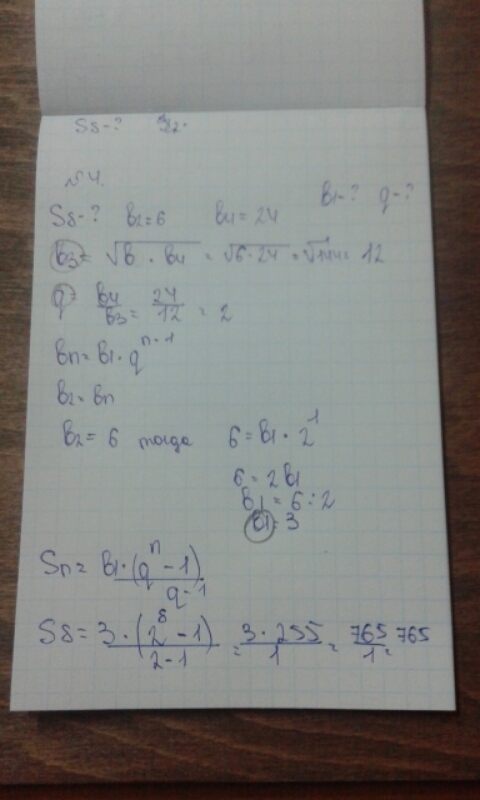 S8 - ?
№4.
b1 - ? q - ?
S8 - ? b2 = 6 b4 = 24
b3 = √b · b4 = √6 · 24 = √144 = 12
q = b4/b3 = 24/12 = 2
bn = b1 · q^n-1
b2 = bn
b2 = 6 тогда 6 = b1 · 2^1
6 = 2b1
b1 = 6 : 2
b1 = 3
Sn = b1 · (q^n - 1)/q - 1
S8 = 3 · (2^8 - 1)/2 - 1 = 3 · 255/1 = 765/1 = 765